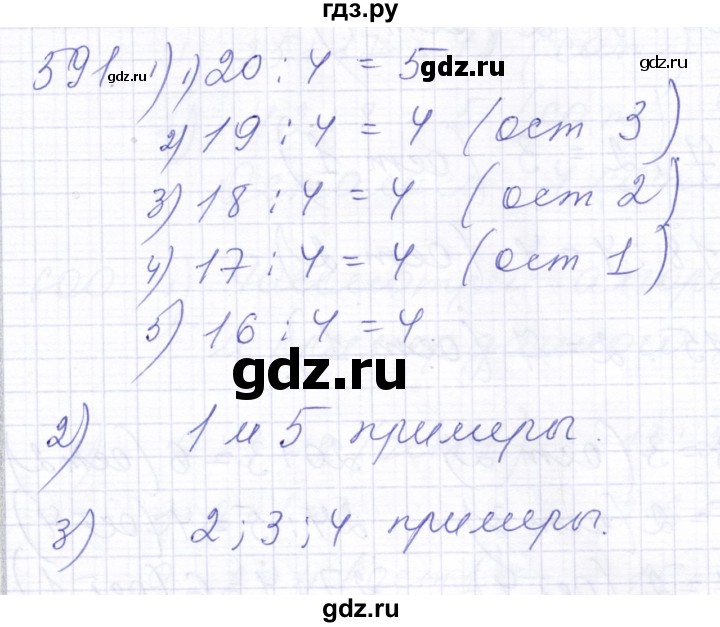 гдз.ру
591 gdz.ru 1) 1) 20 : 4 = 5 gdz.ru gdz.ru
2) 19 : 4 = 4 (ост 3)
3) 18 : 4 = 4 (ост 2)
4) 17 : 4 = 4 (ост 1)
5) 16 : 4 = 4.
gdz.ru
2) 1 и 5 примеры.
3) 2; 3; 4 примеры.
gdz.ru